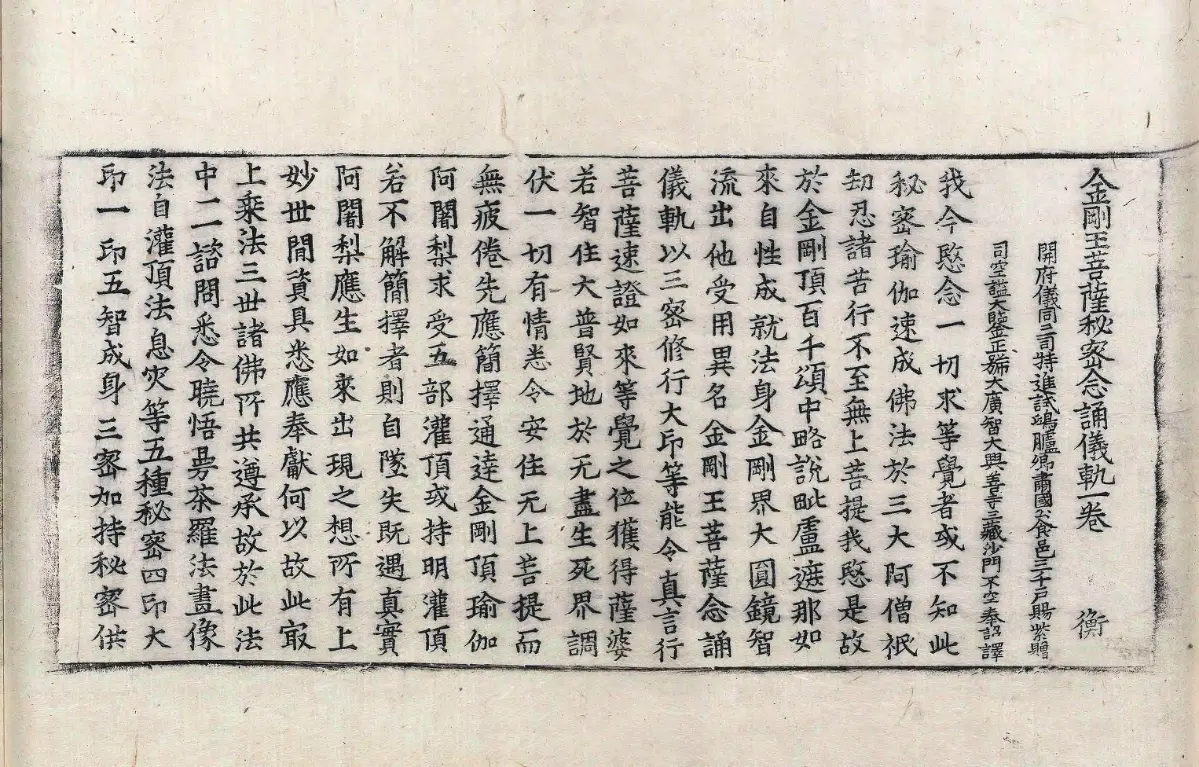 金剛王菩薩秘密念誦儀軌一卷 衡
開府儀同三司特進試鴻臚卿肅國公食邑三千戶賜紫贈
司空謚大鑒正號大廣智大興善寺三藏沙門不空奉詔譯
我今愍念一切求等覺者或不知此
秘密瑜伽速成佛法於三大阿僧祇
劫忍諸苦行不至無上菩提我愍是故
於金剛頂百千頌中略說毗盧遮那如
來自性成就法身金剛界大圓鏡智
流出他受用異名金剛王菩薩念誦
儀軌以三密修行大印等能令真言行
菩薩速證如來等覺之位獲得薩婆
若智住大普賢地於无盡生死界調
伏一切有情悉令安住无上菩提而
無疲倦先應簡擇通達金剛頂瑜伽
阿闍梨求受五部灌頂或持明灌頂
若不解簡擇者則自墜失既遇真實
阿闍梨應生如來出現之想所有上
妙世間資具悉應奉獻何以故此㝡
上乘法三世諸佛所共遵承故於此法
中二諮問悉令曉悟曼茶羅法畫像
法自灌頂法息灾等五種秘密四印大
印一印五智成身三密加持秘密供